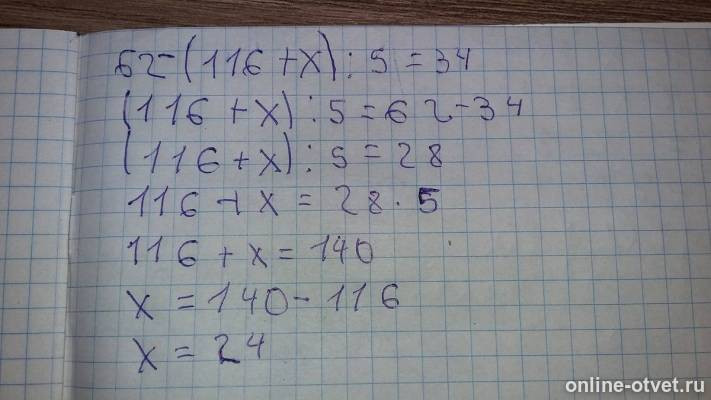 62-(116+x):5=34
(116+x):5=62-34
(116+x):5=28
116+x=28·5
116+x=140
x=140-116
x=24
online-otvet.ru